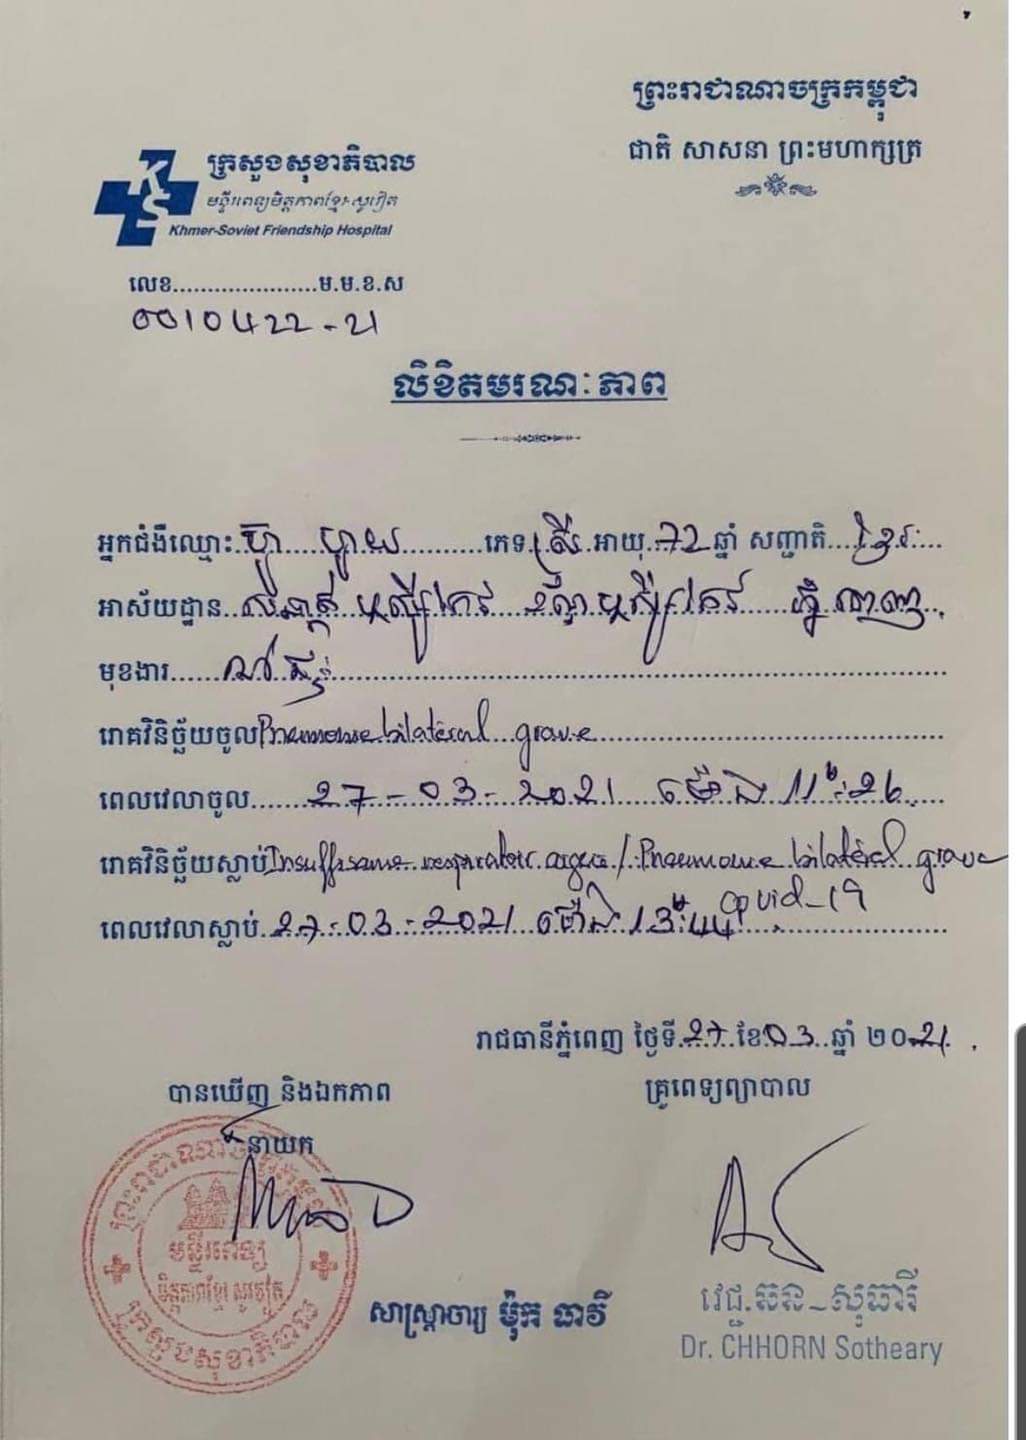 ព្រះរាជាណាចក្រកម្ពុជា
ជាតិ សាសនា ព្រះមហាក្សត្រ
KS
ក្រសួងសុខាភិបាល
មន្ទីរពេទ្យមិត្តភាពខ្មែរ-សូវៀត
Khmer-Soviet Friendship Hospital
លេខ.....................ម.ម.ខ.ស
0010422-21
លិខិតមរណៈភាព
អ្នកជំងឺឈ្មោះ ភេទ ស្រី អាយុ 72 ឆ្នាំ សញ្ជាតិ ខ្មែរ
អាស័យដ្ឋាន ឫស្សីកែវ ខណ្ឌ ឫស្សីកែវ ភ្នំពេញ
មុខងារ
រោគវិនិច្ឆ័យចូល Pneumonie bilatéral grave
ពេលវេលាចូល 27-03-2021 ម៉ោង 11:26
រោគវិនិច្ឆ័យស្លាប់ Insuffisance respiratoire aigue / Pneumonie bilatéral grave
covid-19
ពេលវេលាស្លាប់ 27-03-2021 ម៉ោង 13:44
រាជធានីភ្នំពេញ ថ្ងៃទី 27 ខែ 03 ឆ្នាំ ២០21
បានឃើញ និងឯកភាព
គ្រូពេទ្យព្យាបាល
នាយក
ព្រះរាជាណាចក្រកម្ពុជា
មន្ទីរពេទ្យ
មិត្តភាពខ្មែរ សូវៀត
ក្រសួងសុខាភិបាល
សាស្ត្រាចារ្យ ម៉ុក ធាវី
វេជ្ជ.ឆន-សុធារី
Dr. CHHORN Sotheary